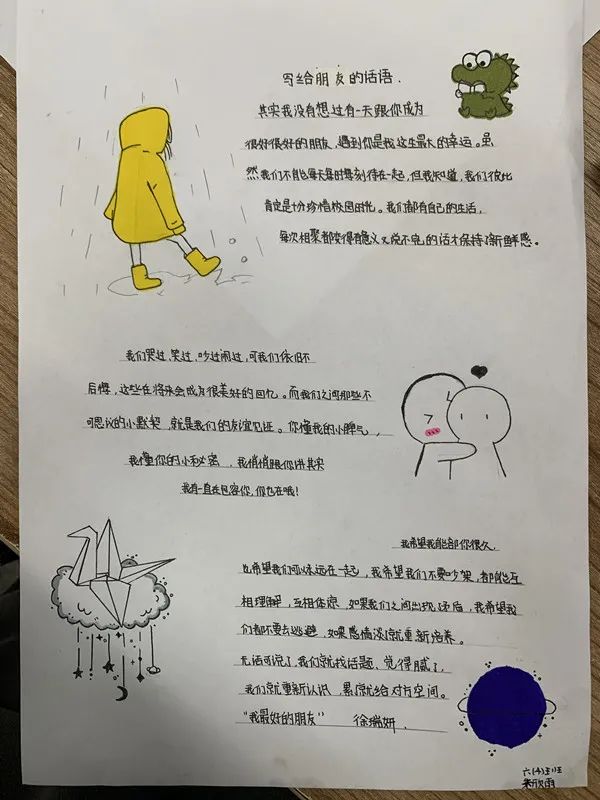 写给朋友的话语.
其实我没有想过有一天跟你成为
很好很好的朋友,遇到你是我这生最大的幸运。虽
然我们不能每天每时每刻待在一起,但我知道,我们彼此
肯定是十分珍惜校园时光。我们都有自己的生活,
每次相聚都变得有意义又说不完的话才保持了新鲜感。
我们哭过,笑过,吵过闹过,可我们依旧不
后悔,这些在将来会成为很美好的回忆。而我们之间那些不
可思议的小默契,就是我们的友谊见证。你懂我的小脾气,
我懂你的小秘密,我悄悄跟你讲其实
我有一直在包容你,你也在哦!
我希望我能陪你很久.
也希望我们可以永远在一起,我希望我们不要吵架,都能互
相理解,互相体谅.如果我们之间出现矛盾,我希望我
们都不要去逃避,如果感情淡了就重新培养。
无话可说了,我们就找话题、觉得腻了,
我们就重新认识,累了就给对方空间。
"我最好的朋友" 徐瑞妍.
六(4)班
朱欣雨